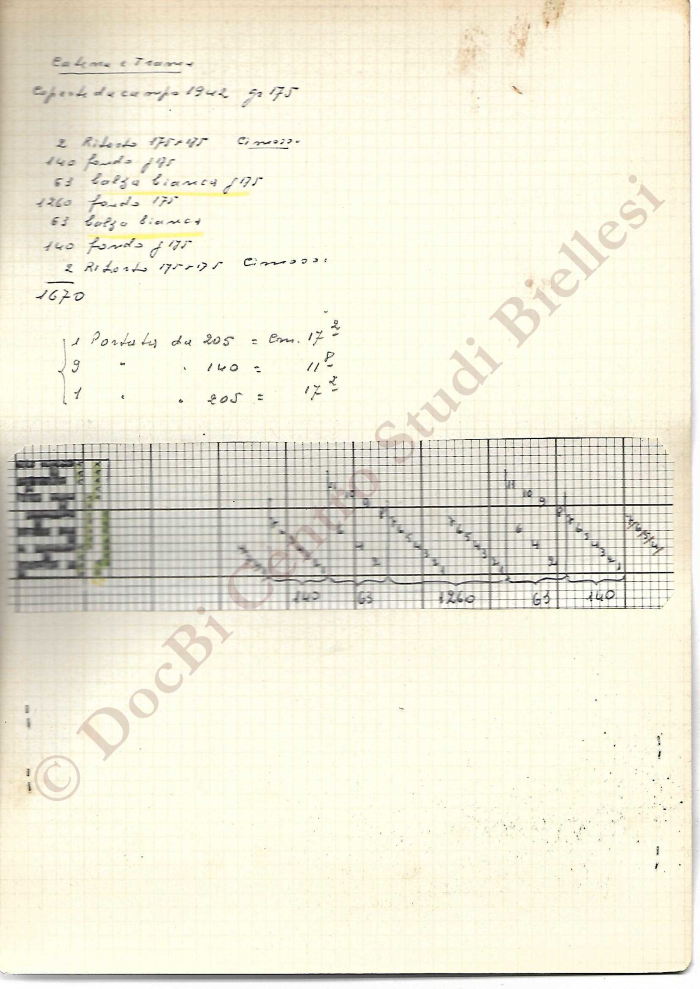 Catena e Trama
Coperte da campo 1942 gr 175
2 Ritorto 175+175 Cimossa
140 fondo g 175
63 balza bianca g 175
1260 fondo 175
63 balza bianca
140 fondo g 175
2 Ritorto 175+175 Cimossa
1670
1 Portata da 205 = Cm. 17 2
9 " " 140 = 11 8
1 " " 205 = 17 2
11 10 9 8 7 6 5 4 3 2 1
6 4 2
140 63 1260 63 140
© DocBi Centro Studi Biellesi